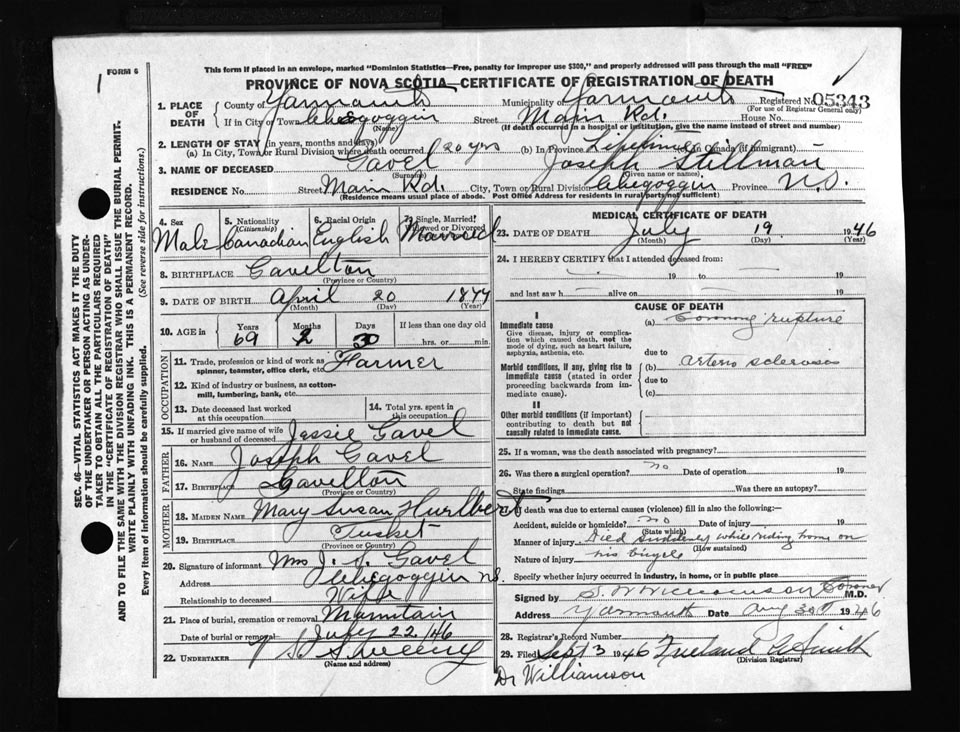 FORM 6
This form if placed in an envelope, marked "Dominion Statistics—Free, penalty for improper use $300," and properly addressed will pass through the mail "FREE"
PROVINCE OF NOVA SCOTIA—CERTIFICATE OF REGISTRATION OF DEATH
1. PLACE OF DEATH County of Yarmouth Municipality of Yarmouth Registered No. 05343
(For use of Registrar General only)
If in City or Town Street Main Rd. House No.
(Name) (If death occurred in a hospital or institution, give the name instead of street and number)
2. LENGTH OF STAY (in years, months and days)
(a) In City, Town or Rural Division where death occurred 20 yrs (b) In Province Lifetime in Canada (if immigrant)
3. NAME OF DECEASED Gavel Joseph Stillman
(Surname) (Given name or names)
RESIDENCE No. Street Main Rd. City, Town or Rural Division Province N.S.
(Residence means usual place of abode. Post Office Address for residents in rural parts not sufficient)
4. Sex Male
5. Nationality (Citizenship) Canadian
6. Racial Origin English
7. Single, Married, Widowed or Divorced Married
8. BIRTHPLACE Gavelton
(Province or Country)
9. DATE OF BIRTH April 20 18
(Month) (Day) (Year)
10. AGE in Years Months Days If less than one day old
69 2 30 hrs. or min.
OCCUPATION
11. Trade, profession or kind of work as spinner, teamster, office clerk, etc. Farmer
12. Kind of industry or business, as cotton-mill, lumbering, bank, etc.
13. Date deceased last worked at this occupation
14. Total yrs. spent in this occupation
15. If married give name of wife or husband of deceased Jessie Gavel
FATHER
16. NAME Joseph Gavel
17. BIRTHPLACE Gavelton
(Province or Country)
MOTHER
18. MAIDEN NAME Mary Susan Hurlbert
19. BIRTHPLACE Tusket
(Province or Country)
20. Signature of informant Mrs J. S. Gavel
Address N.S.
Relationship to deceased Wife
21. Place of burial, cremation or removal
Date of burial or removal July 22/46
22. UNDERTAKER Sweeny
(Name and address)
MEDICAL CERTIFICATE OF DEATH
23. DATE OF DEATH July 19 1946
(Month) (Day) (Year)
24. I HEREBY CERTIFY that I attended deceased from:
19 to 19
and last saw h alive on 19
CAUSE OF DEATH
I
Immediate cause (a) Coronary rupture
Give disease, injury or complication which caused death, not the mode of dying, such as heart failure, asphyxia, asthenia, etc.
due to
Morbid conditions, if any, giving rise to immediate cause (stated in order proceeding backwards from immediate cause). (b) arterio sclerosis
due to
(c)
II
Other morbid conditions (if important) contributing to death but not causally related to immediate cause.
25. If a woman, was the death associated with pregnancy?
26. Was there a surgical operation? no Date of operation 19
State findings Was there an autopsy?
If death was due to external causes (violence) fill in also the following:—
Accident, suicide or homicide? no Date of injury 19
(State which)
Manner of injury Died suddenly while riding home on
(How sustained)
Nature of injury his bicycle
Specify whether injury occurred in industry, in home, or in public place
Signed by Williamson Coroner M.D.
Address Yarmouth Date Aug 30 1946
28. Registrar's Record Number
29. Filed Sept 3 1946 Smith
(Division Registrar)
Dr Williamson
SEC. 46—VITAL STATISTICS ACT MAKES IT THE DUTY
OF THE UNDERTAKER OR PERSON ACTING AS UNDER-
TAKER TO OBTAIN ALL THE PARTICULARS REQUIRED
IN THE "CERTIFICATE OF REGISTRATION OF DEATH"
AND TO FILE THE SAME WITH THE DIVISION REGISTRAR WHO SHALL ISSUE THE BURIAL PERMIT.
WRITE PLAINLY WITH UNFADING INK. THIS IS A PERMANENT RECORD.
Every item of information should be carefully supplied. (See reverse side for instructions.)